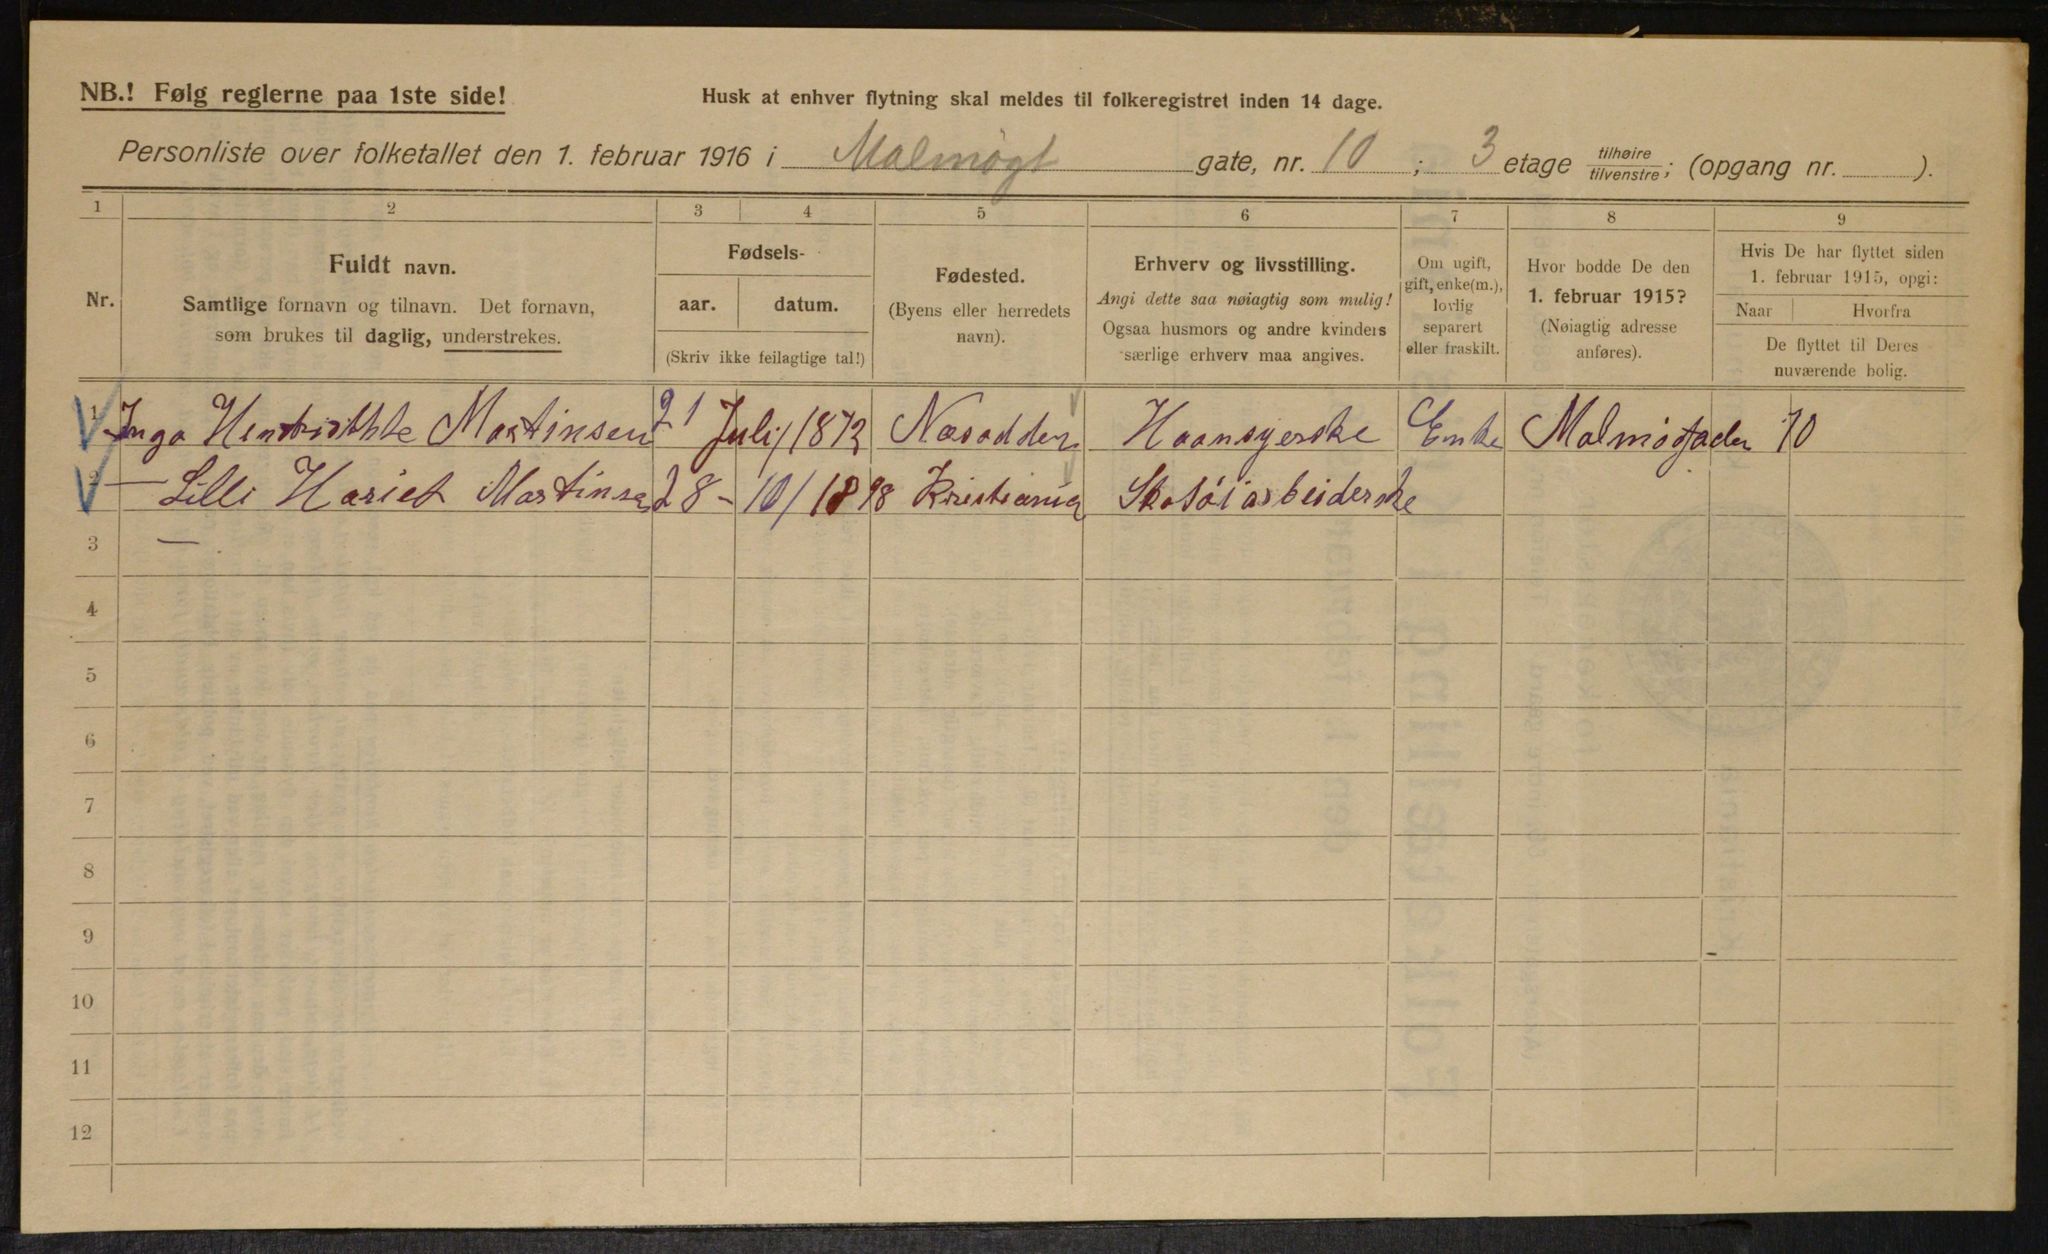 NB.! Følg reglerne paa 1ste side!
Husk at enhver flytning skal meldes til folkeregistret inden 14 dage.
Personliste over folketallet den 1. februar 1916 i Malmøgt gate, nr. 10 ; 3 etage tilhøire/tilvenstre; (opgang nr. ).
1 2 3 4 5 6 7 8 9
Nr.
Fuldt navn.
Samtlige fornavn og tilnavn. Det fornavn,
som brukes til daglig, understrekes.
Fødsels-
aar. datum.
(Skriv ikke feilagtige tal!)
Fødested.
(Byens eller herredets
navn).
Erhverv og livsstilling.
Angi dette saa nøiagtig som mulig!
Ogsaa husmors og andre kvinders
særlige erhverv maa angives.
Om ugift,
gift, enke(m.),
lovlig
separert
eller fraskilt.
Hvor bodde De den
1. februar 1915?
(Nøiagtig adresse
anføres).
Hvis De har flyttet siden
1. februar 1915, opgi:
Naar Hvorfra
De flyttet til Deres
nuværende bolig.
1 Inga Martinsen 21 Juli 1873 Næsodden Enke 10
2 Lilli Hariet Martinsen 28-10/1898 Kristiania Skotøiarbeiderske
3
4
5
6
7
8
9
10
11
12